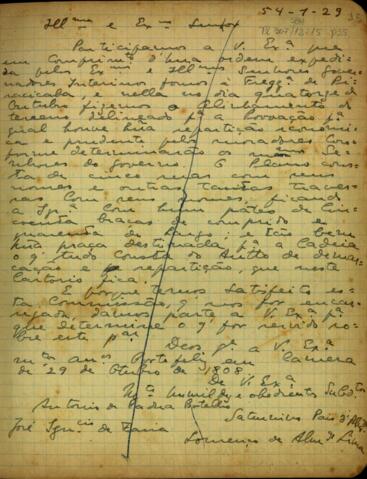 54-1-29
Ill^mo e Ex^mo Senhor
Participamos a V. Ex.ª que
em cumprim^to d'uma ordem expedi-
da pelos Ex^mos e Ill^mos Senhores Gover-
nadores Interinos fomos a Freg.ª de Pi-
racicaba, e nella no dia quatorze de
Outubro fizemos o Alinhamento do
terreno delineado p.ª a Povoação p.ª
qual houve hua repartição economi-
ca e prudente pelos moradores con-
forme determinarão os mesmos Se-
nhores do Governo. O Plano cons-
ta de cinco ruas com seus
nomes e outras tantas traves-
sas com seus nomes, ficando
a Igr. com hum páteo de cin-
coenta braças de comprido e
quarenta de largo; e tão bem
hua praça destinada p.ª a Cadeia
o q' tudo consta do Autto de demar-
cação e repartição, que neste
Cartorio fica.
E por termos satisfeito es-
ta Commissão, q' nos foi encar-
regada, damos parte a V. Ex.ª p.ª
que determine o q' for servido so-
bre este par.
Deos g.ª a V. Ex.ª
m^tos an^s Porto feliz em Camera
de 29 de Outubro de 1808.
De V. Ex.ª
humildes e obedientes Subditos
Antonio de Padua Botelho
Saturnino Paes
José Ign^cio de Faria
Lourenço de Alm^da Lima